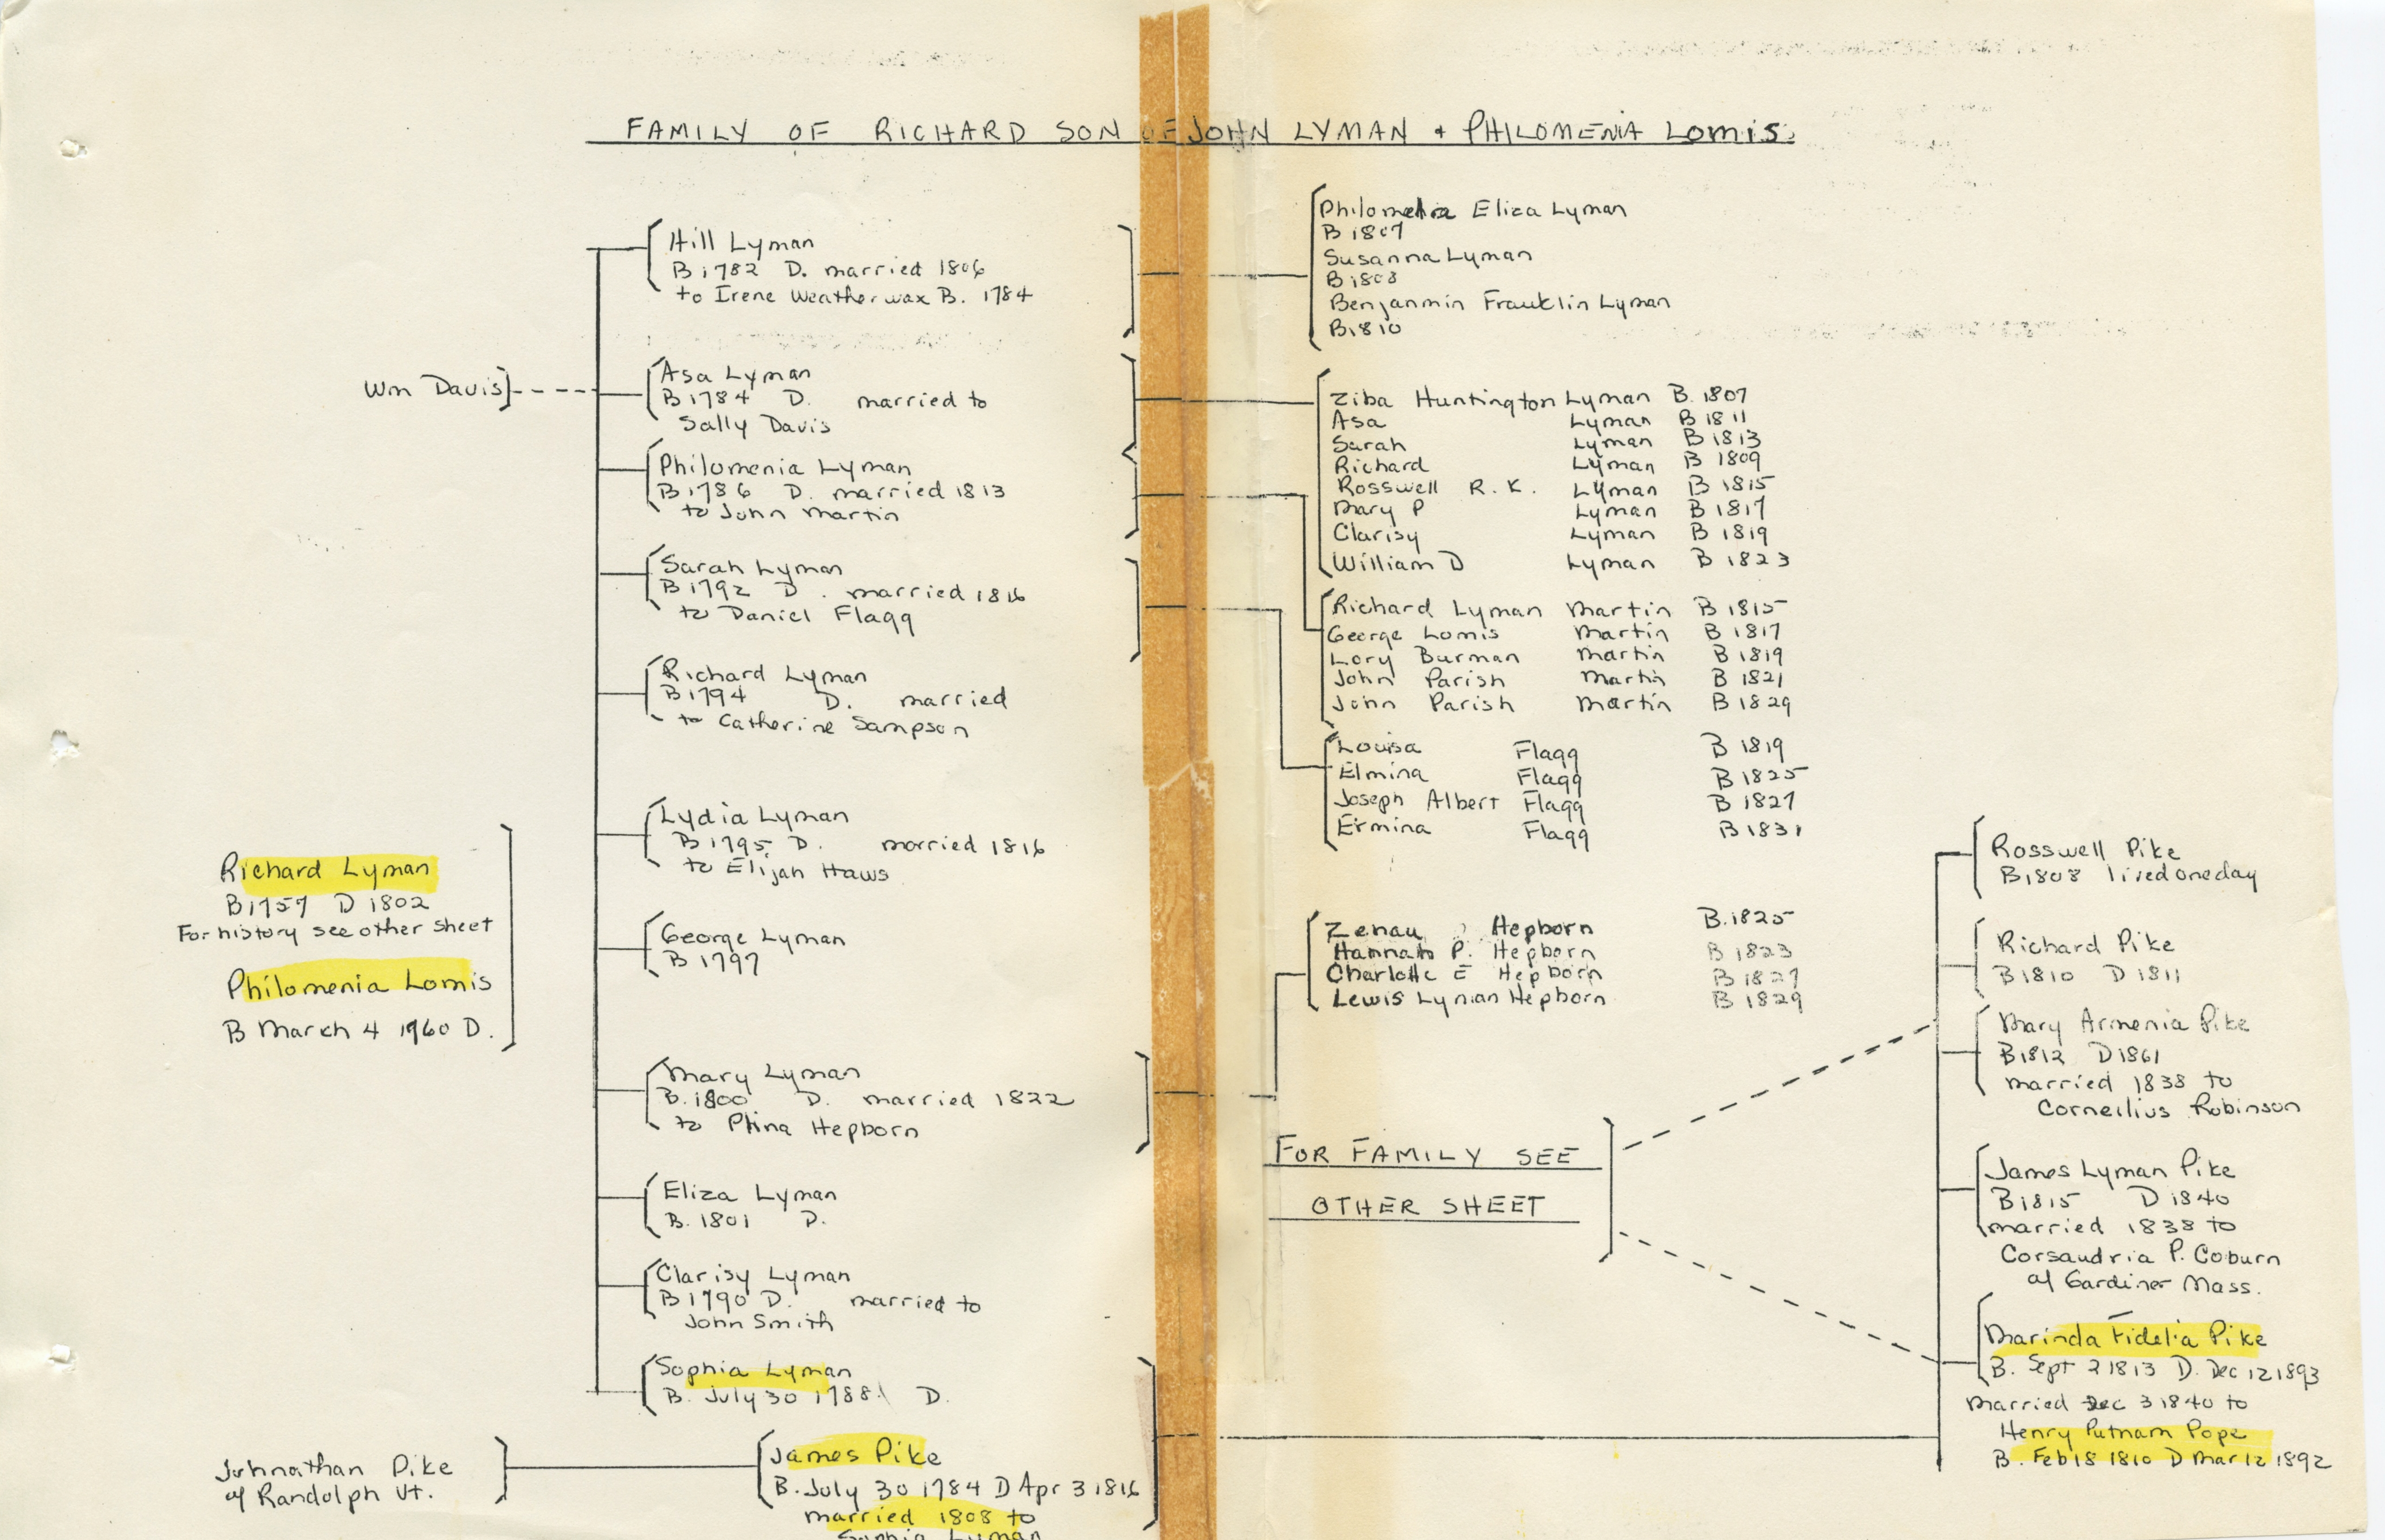 FAMILY OF RICHARD SON OF JOHN LYMAN + PHILOMENIA LOMIS.
Wm Davis
Richard Lyman
B 1757 D 1802
For history see other sheet
Philomenia Lomis
B March 4 1960 D.
Johnathan Pike
of Randolph Vt.
Hill Lyman
B 1782 D. married 1806
to Irene Weatherwax B. 1784
Asa Lyman
B 1784 D. married to
Sally Davis
Philomenia Lyman
B 1786 D. married 1813
to John Martin
Sarah Lyman
B 1792 D. married 1816
to Daniel Flagg
Richard Lyman
B 1794 D. married
to Catherine Sampson
Lydia Lyman
B 1795 D. married 1816
to Elijah Haws
George Lyman
B 1797
Mary Lyman
B. 1800 D. married 1822
to Hepborn
Eliza Lyman
B. 1801 D.
Clarisy Lyman
B 1790 D. married to
John Smith
Sophia Lyman
B. July 30 1788 D.
James Pike
B. July 30 1784 D Apr 3 1816
married 1808 to
Sophia Lyman
Eliza Lyman
B 1807
Susanna Lyman
B 1808
Benjanmin Franklin Lyman
B 1810
Ziba Huntington Lyman B. 1807
Asa Lyman B 1811
Sarah Lyman B 1813
Richard Lyman B 1809
Rosswell R. K. Lyman B 1815
Mary P Lyman B 1817
Clarisy Lyman B 1819
William D Lyman B 1823
Richard Lyman Martin B 1815
George Lomis Martin B 1817
Lory Burman Martin B 1819
John Parish Martin B 1821
John Parish Martin B 1829
Louisa Flagg B 1819
Elmina Flagg B 1825
Joseph Albert Flagg B 1827
Ermina Flagg B 1831
Zenau Hepborn B. 1825
Hannah P. Hepborn B 1823
Charlotte E Hepborn B 1827
Lewis Lyman Hepborn B 1829
FOR FAMILY SEE
OTHER SHEET
Rosswell Pike
B 1808 lived one day
Richard Pike
B 1810 D 1811
Mary Armenia Pike
B 1812 D 1861
married 1838 to
Corneilius Robinson
James Lyman Pike
B 1815 D 1840
married 1838 to
Corsandria P. Coburn
of Gardiner Mass.
Marinda Fidelia Pike
B. Sept 2 1813 D. Dec 12 1893
married Dec 3 1840 to
Henry Putnam Pope
B. Feb 18 1810 D Mar 12 1892